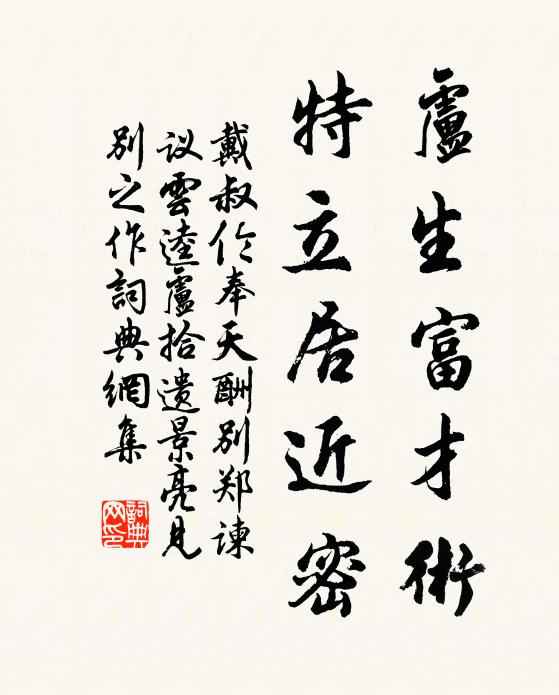 盧生富才術
特立居近密
戴叔伦奉天酬别郑諫
议雲逵盧拾遗景亮見
别之作詞典網集
詞典
网印